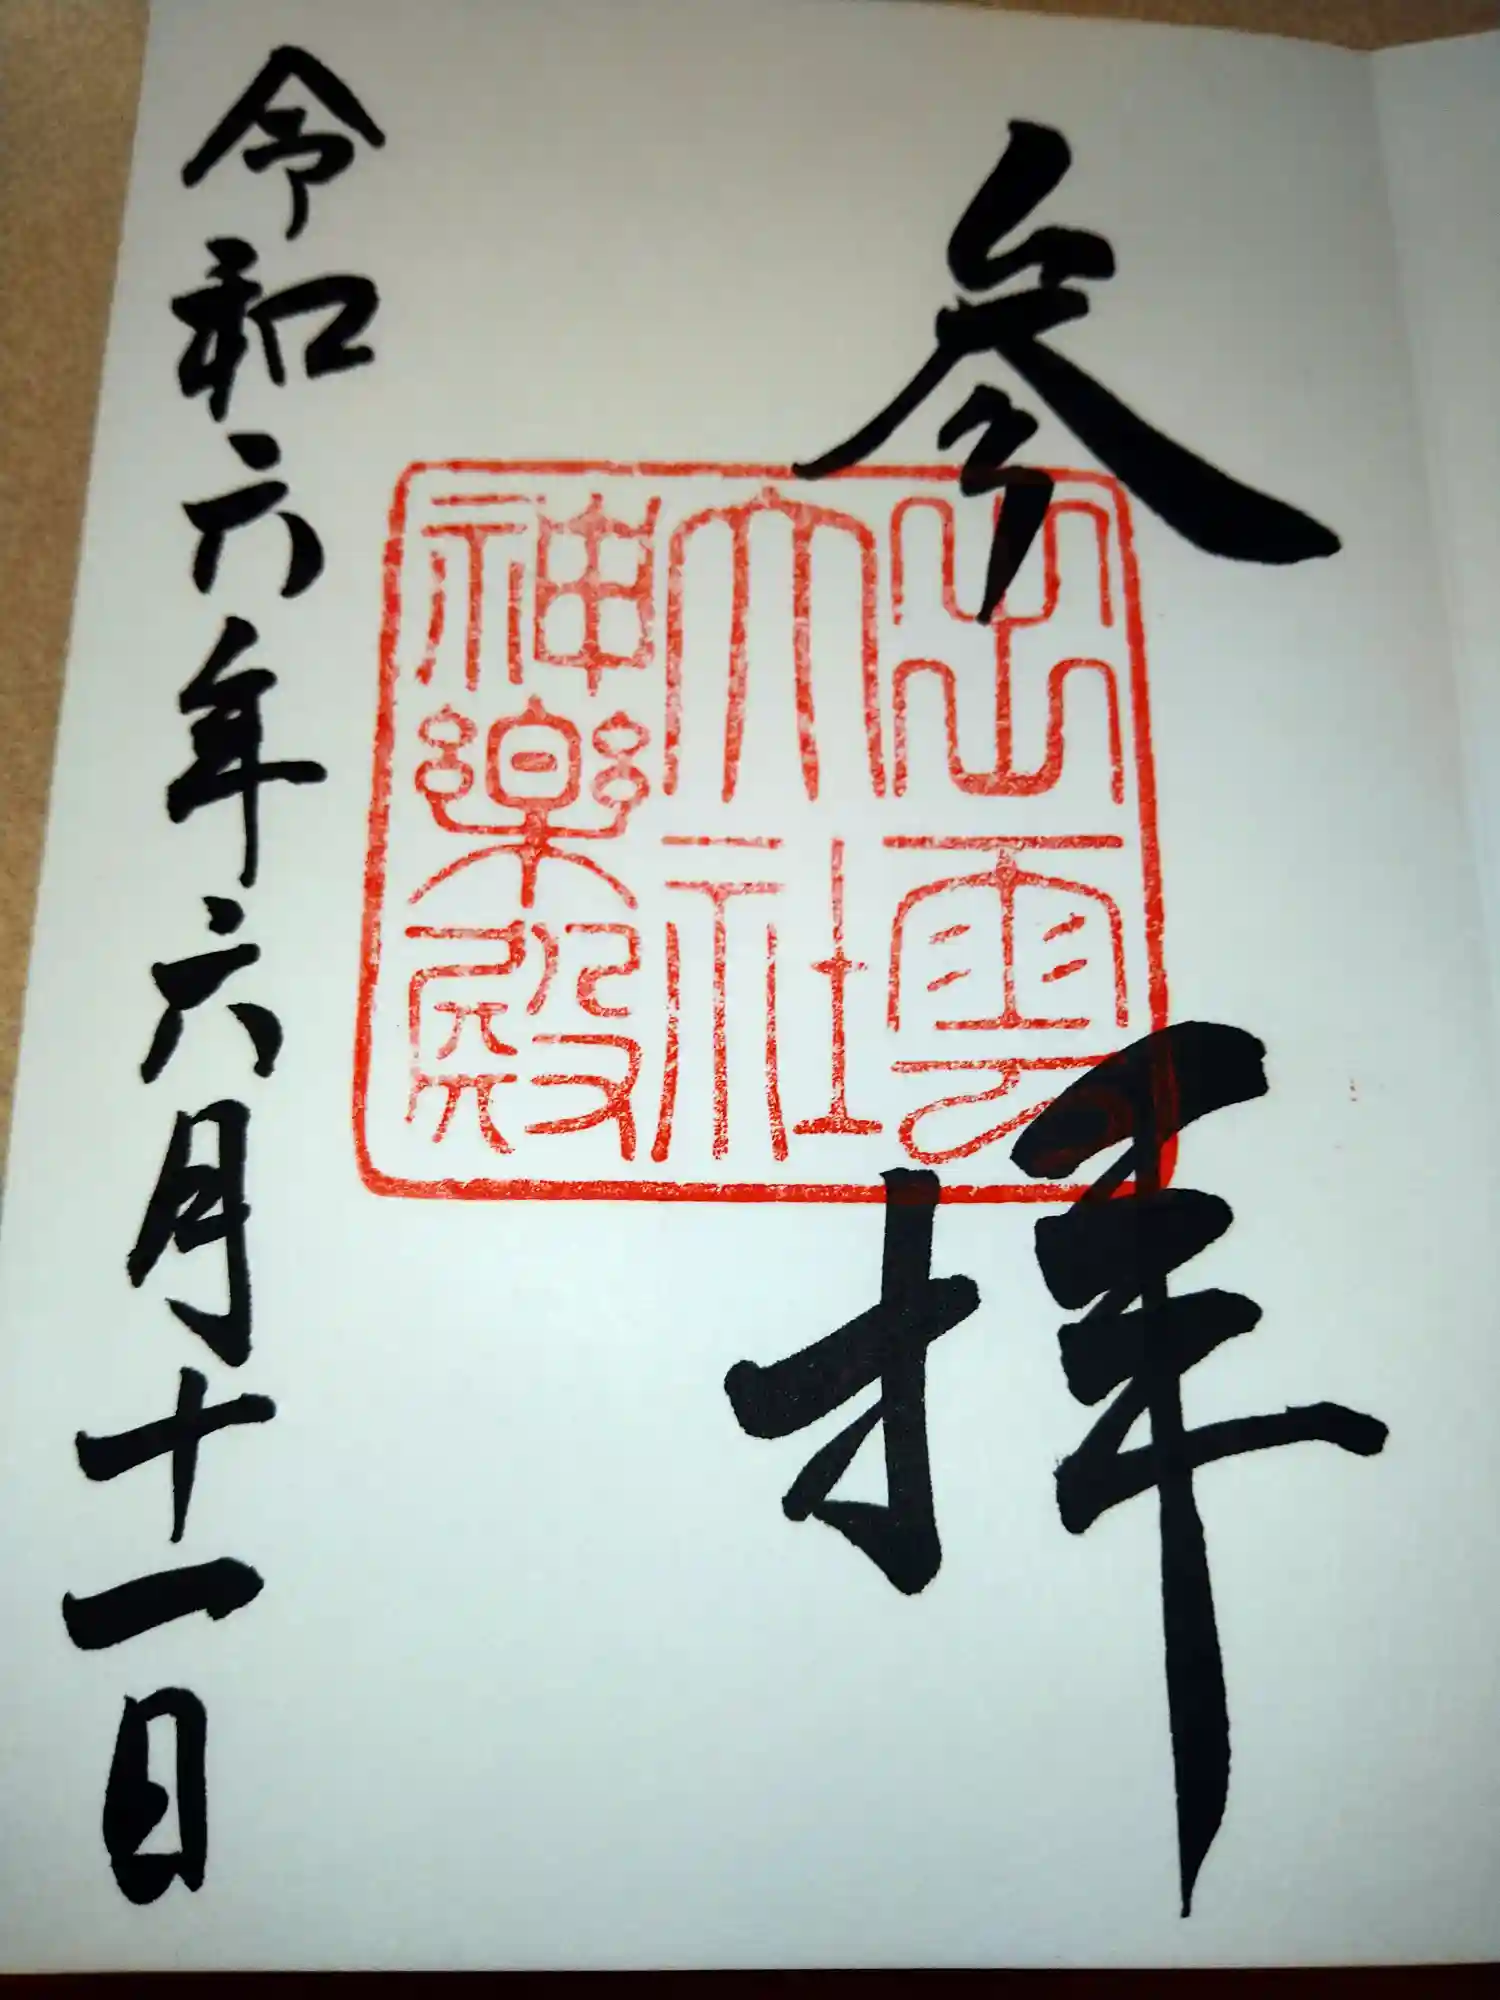 参拝
出雲
大社
神楽殿
令和六年六月十一日